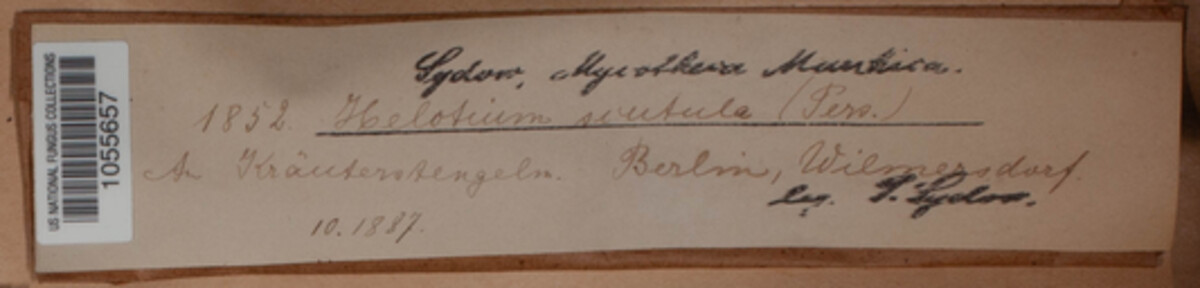 US NATIONAL FUNGUS COLLECTIONS
1055657
Sydow, Mycotheca Marchica.
1852. Helotium scutula (Pers.)
An Kräuterstengeln. Berlin, Wilmersdorf.
Leg. P. Sydow.
10.1887.